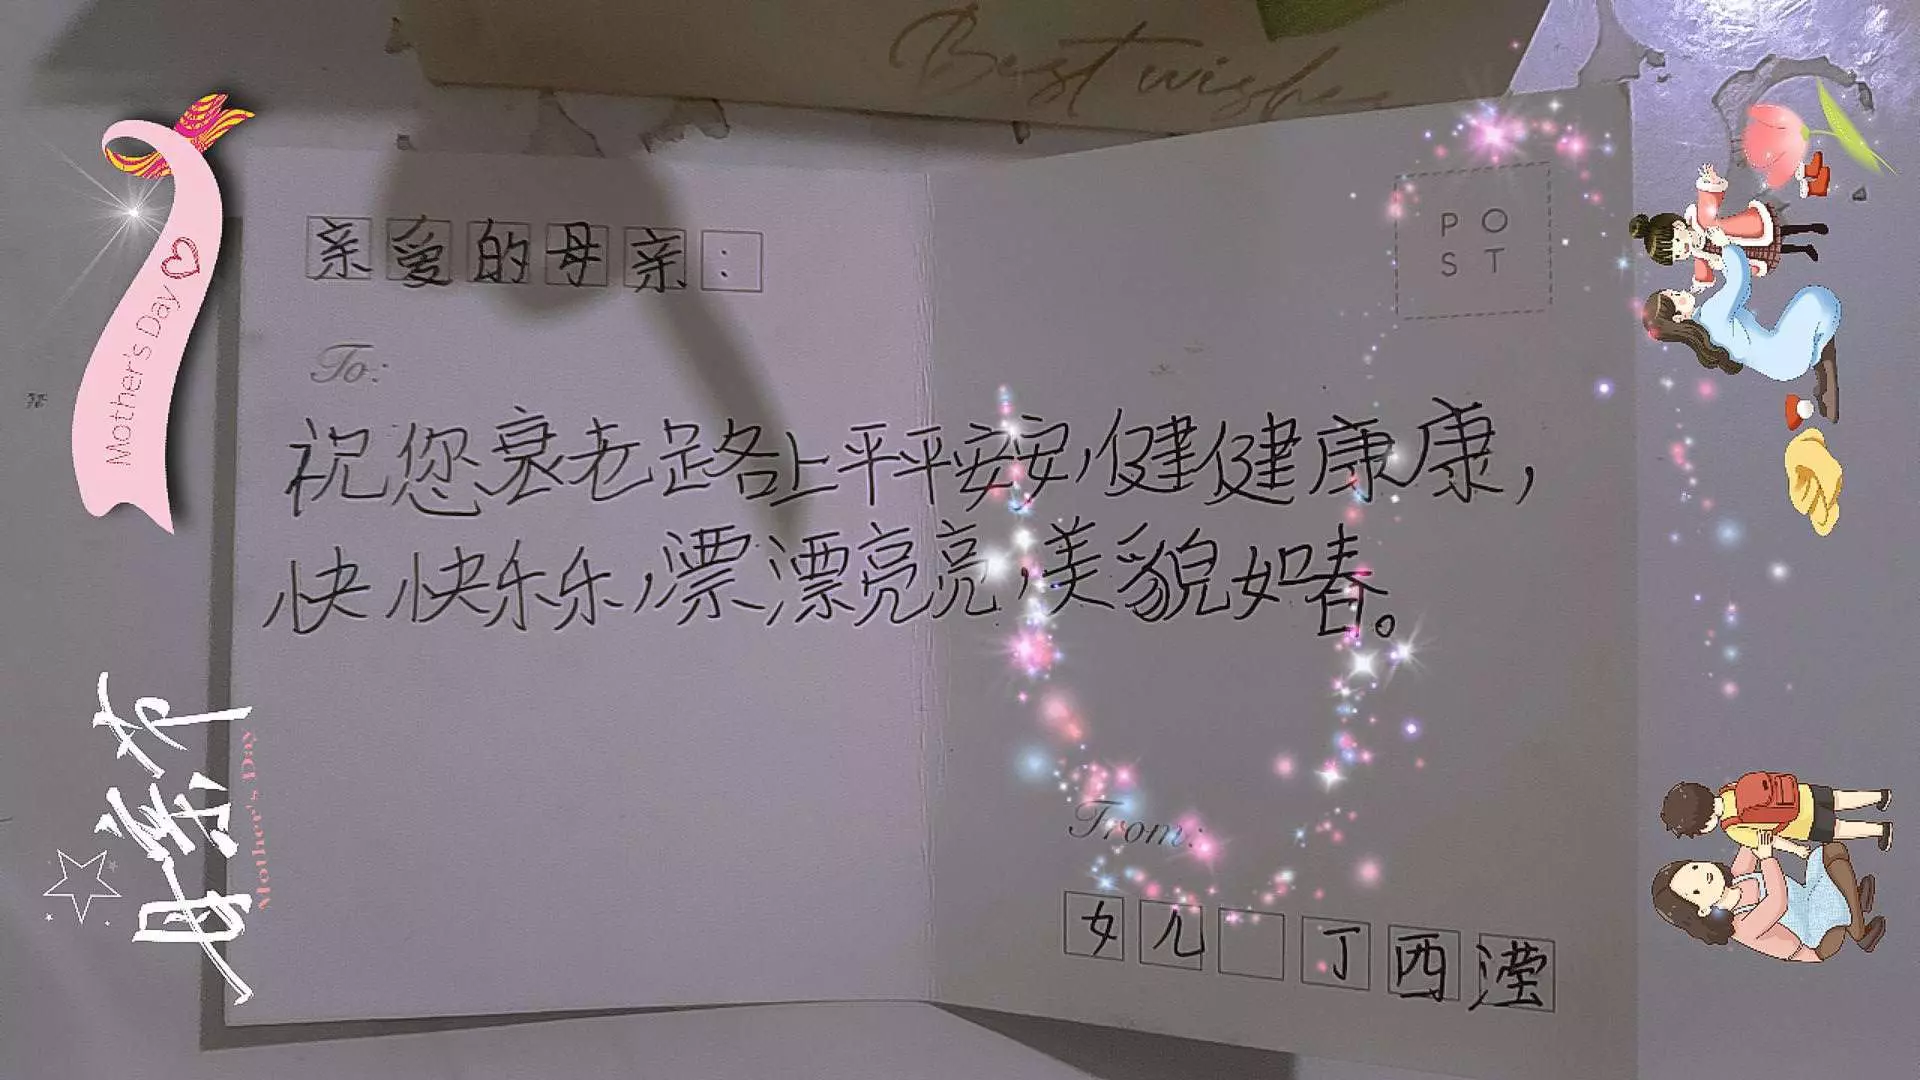 Best wishes
Mother's Day
亲爱的母亲:
POST
To:
祝您衰老路上平平安安,健健康康,
快快乐乐,漂漂亮亮,美貌如春。
From:
女儿 丁西滢
母亲节
Mother's Day